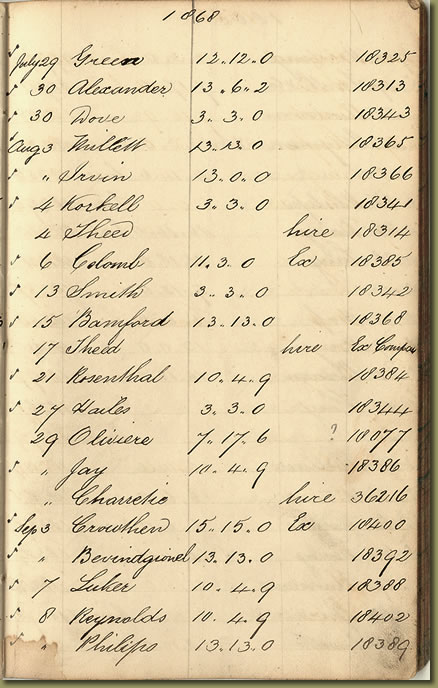 1868
July 29 Green 12.. 12.. 0 18325
30 Alexander 13.. 6.. 2 18313
30 Dove 3.. 3.. 0 18343
Aug 3 Willett 13.. 13.. 0 18365
" Irvin 13.. 0.. 0 18366
4 Korkell 3.. 3.. 0 18341
4 Theed hire 18314
6 Colomb 11.. 3.. 0 Ex 18385
13 Smith 3.. 3.. 0 18342
15 Bamford 13.. 13.. 0 18368
17 Theed hire Ex
21 Rosenthal 10.. 4.. 9 18384
27 Hailes 3.. 3.. 0 18344
29 Oliviere 7.. 17.. 6 ? 18077
" Jay 10.. 4.. 9 18386
" Charretie hire 36216
Sep 3 Crowthen 15.. 15.. 0 Ex 10400
" 13.. 13.. 0 18392
7 Luker 10.. 4.. 9 18388
8 Reynolds 10.. 4.. 9 18402
" Philips 13.. 13.. 0 18389